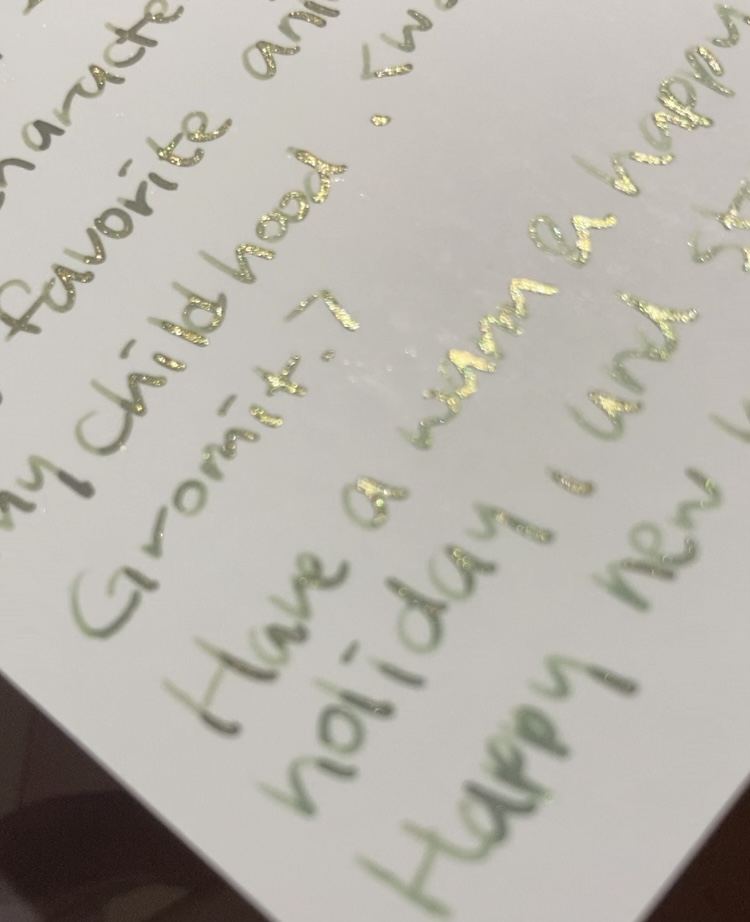 haracte
favorite ani
my childhood. <Wa
Gromit.>
Have a warm & happy
holiday, and st
Happy new